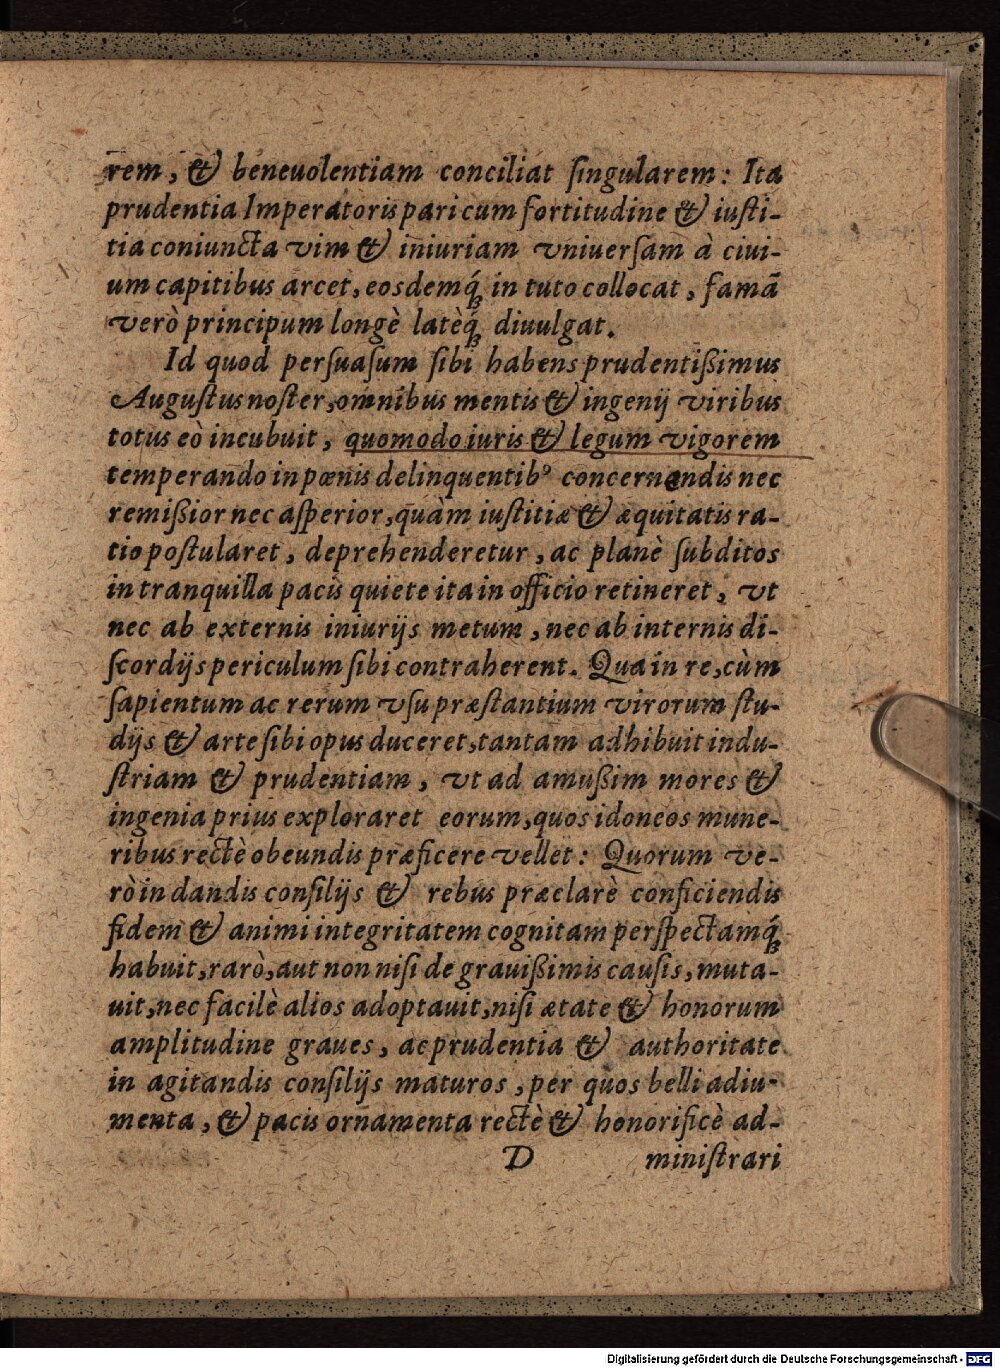 rem, & beneuolentiam conciliat ſingularem: Ita
prudentia Imperatoris pari cum fortitudine & iuſti-
tia coniuncta vim & iniuriam vniuerſam à ciui-
um capitibus arcet, eosdemq́ꝫ in tuto collocat, famã
verò principum longè latèq́ꝫ diuulgat.
Id quod perſuaſum ſibi habens prudentißimus
Auguſtus noſter, omnibus mentis & ingenij viribus
totus eò incubuit, quomodo iuris & legum vigorem
temperando in pœnis delinquentibꝰ concernendis nec
remißior nec aſperior, quàm iuſtitiæ & æquitatis ra-
tio poſtularet, deprehenderetur, ac planè ſubditos
in tranquilla pacis quiete ita in officio retineret, vt
nec ab externis iniurijs metum, nec ab internis di-
ſcordijs periculum ſibi contraherent. Qua in re, cùm
ſapientum ac rerum vſu præſtantium virorum ſtu-
dijs & arte ſibi opus duceret, tantam adhibuit indu-
ſtriam & prudentiam, vt ad amußim mores &
ingenia prius exploraret eorum, quos idoneos mune-
ribus rectè obeundis præficere vellet: Quorum ve-
rò in dandis conſilijs & rebus præclarè conficiendis
fidem & animi integritatem cognitam perſpectamq́ꝫ
habuit, rarò, aut non niſi de grauißimis cauſis, muta-
uit, nec facilè alios adoptauit, niſi ætate & honorum
amplitudine graues, ac prudentia & authoritate
in agitandis conſilijs maturos, per quos belli adiu-
menta, & pacis ornamenta rectè & honorificè ad-
D miniſtrari
Digitalisierung gefördert durch die Deutsche Forschungsgemeinschaft - DFG